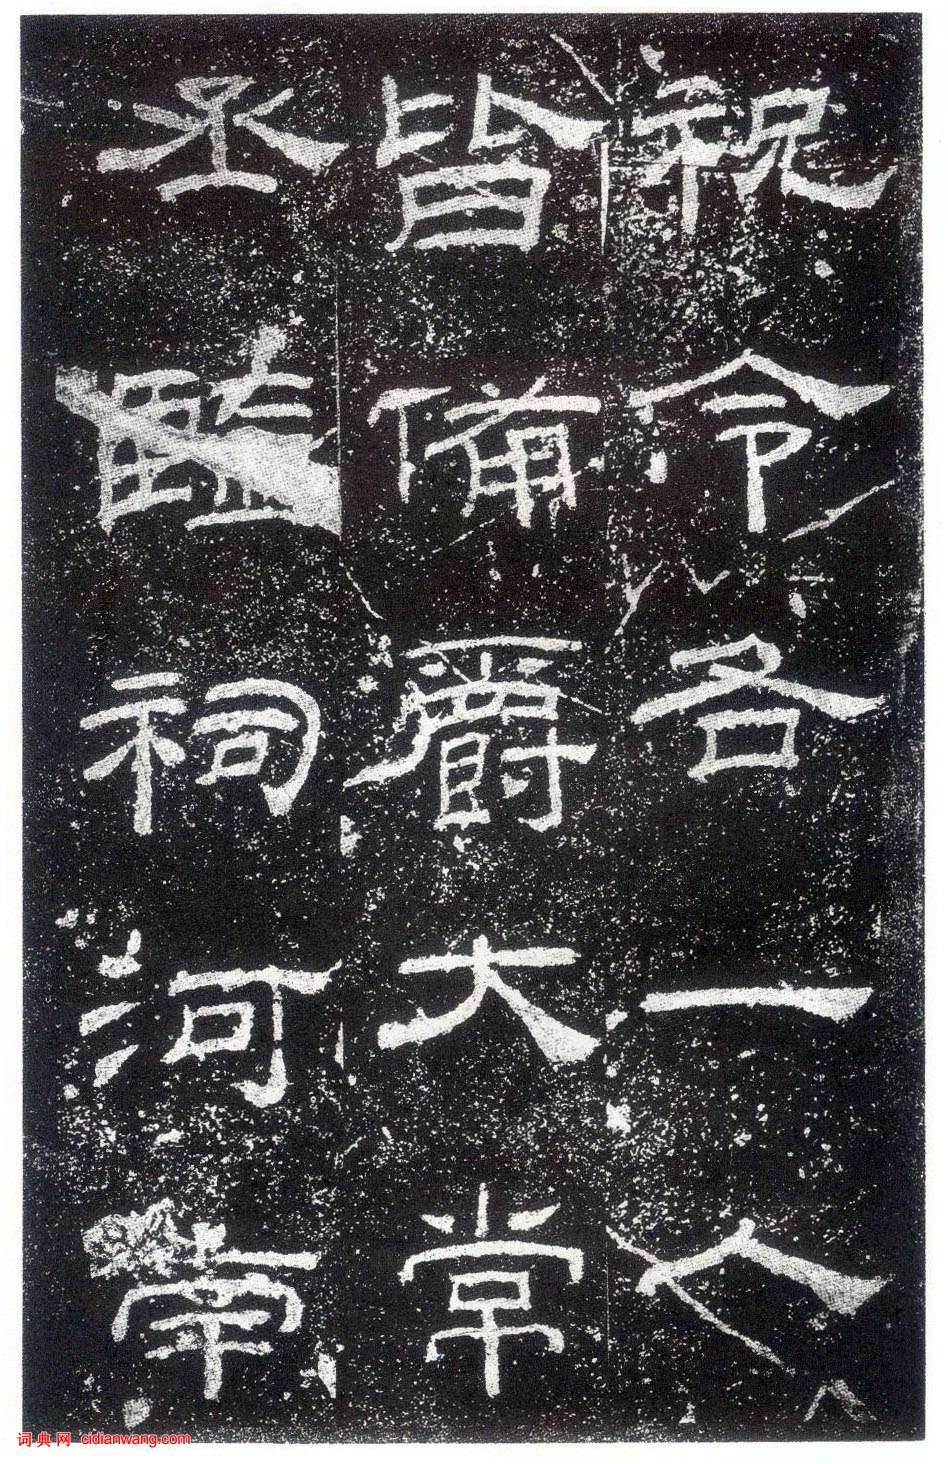 祝令各一人
皆備爵大常
丞監祠河南
词典网 cidianwang.com